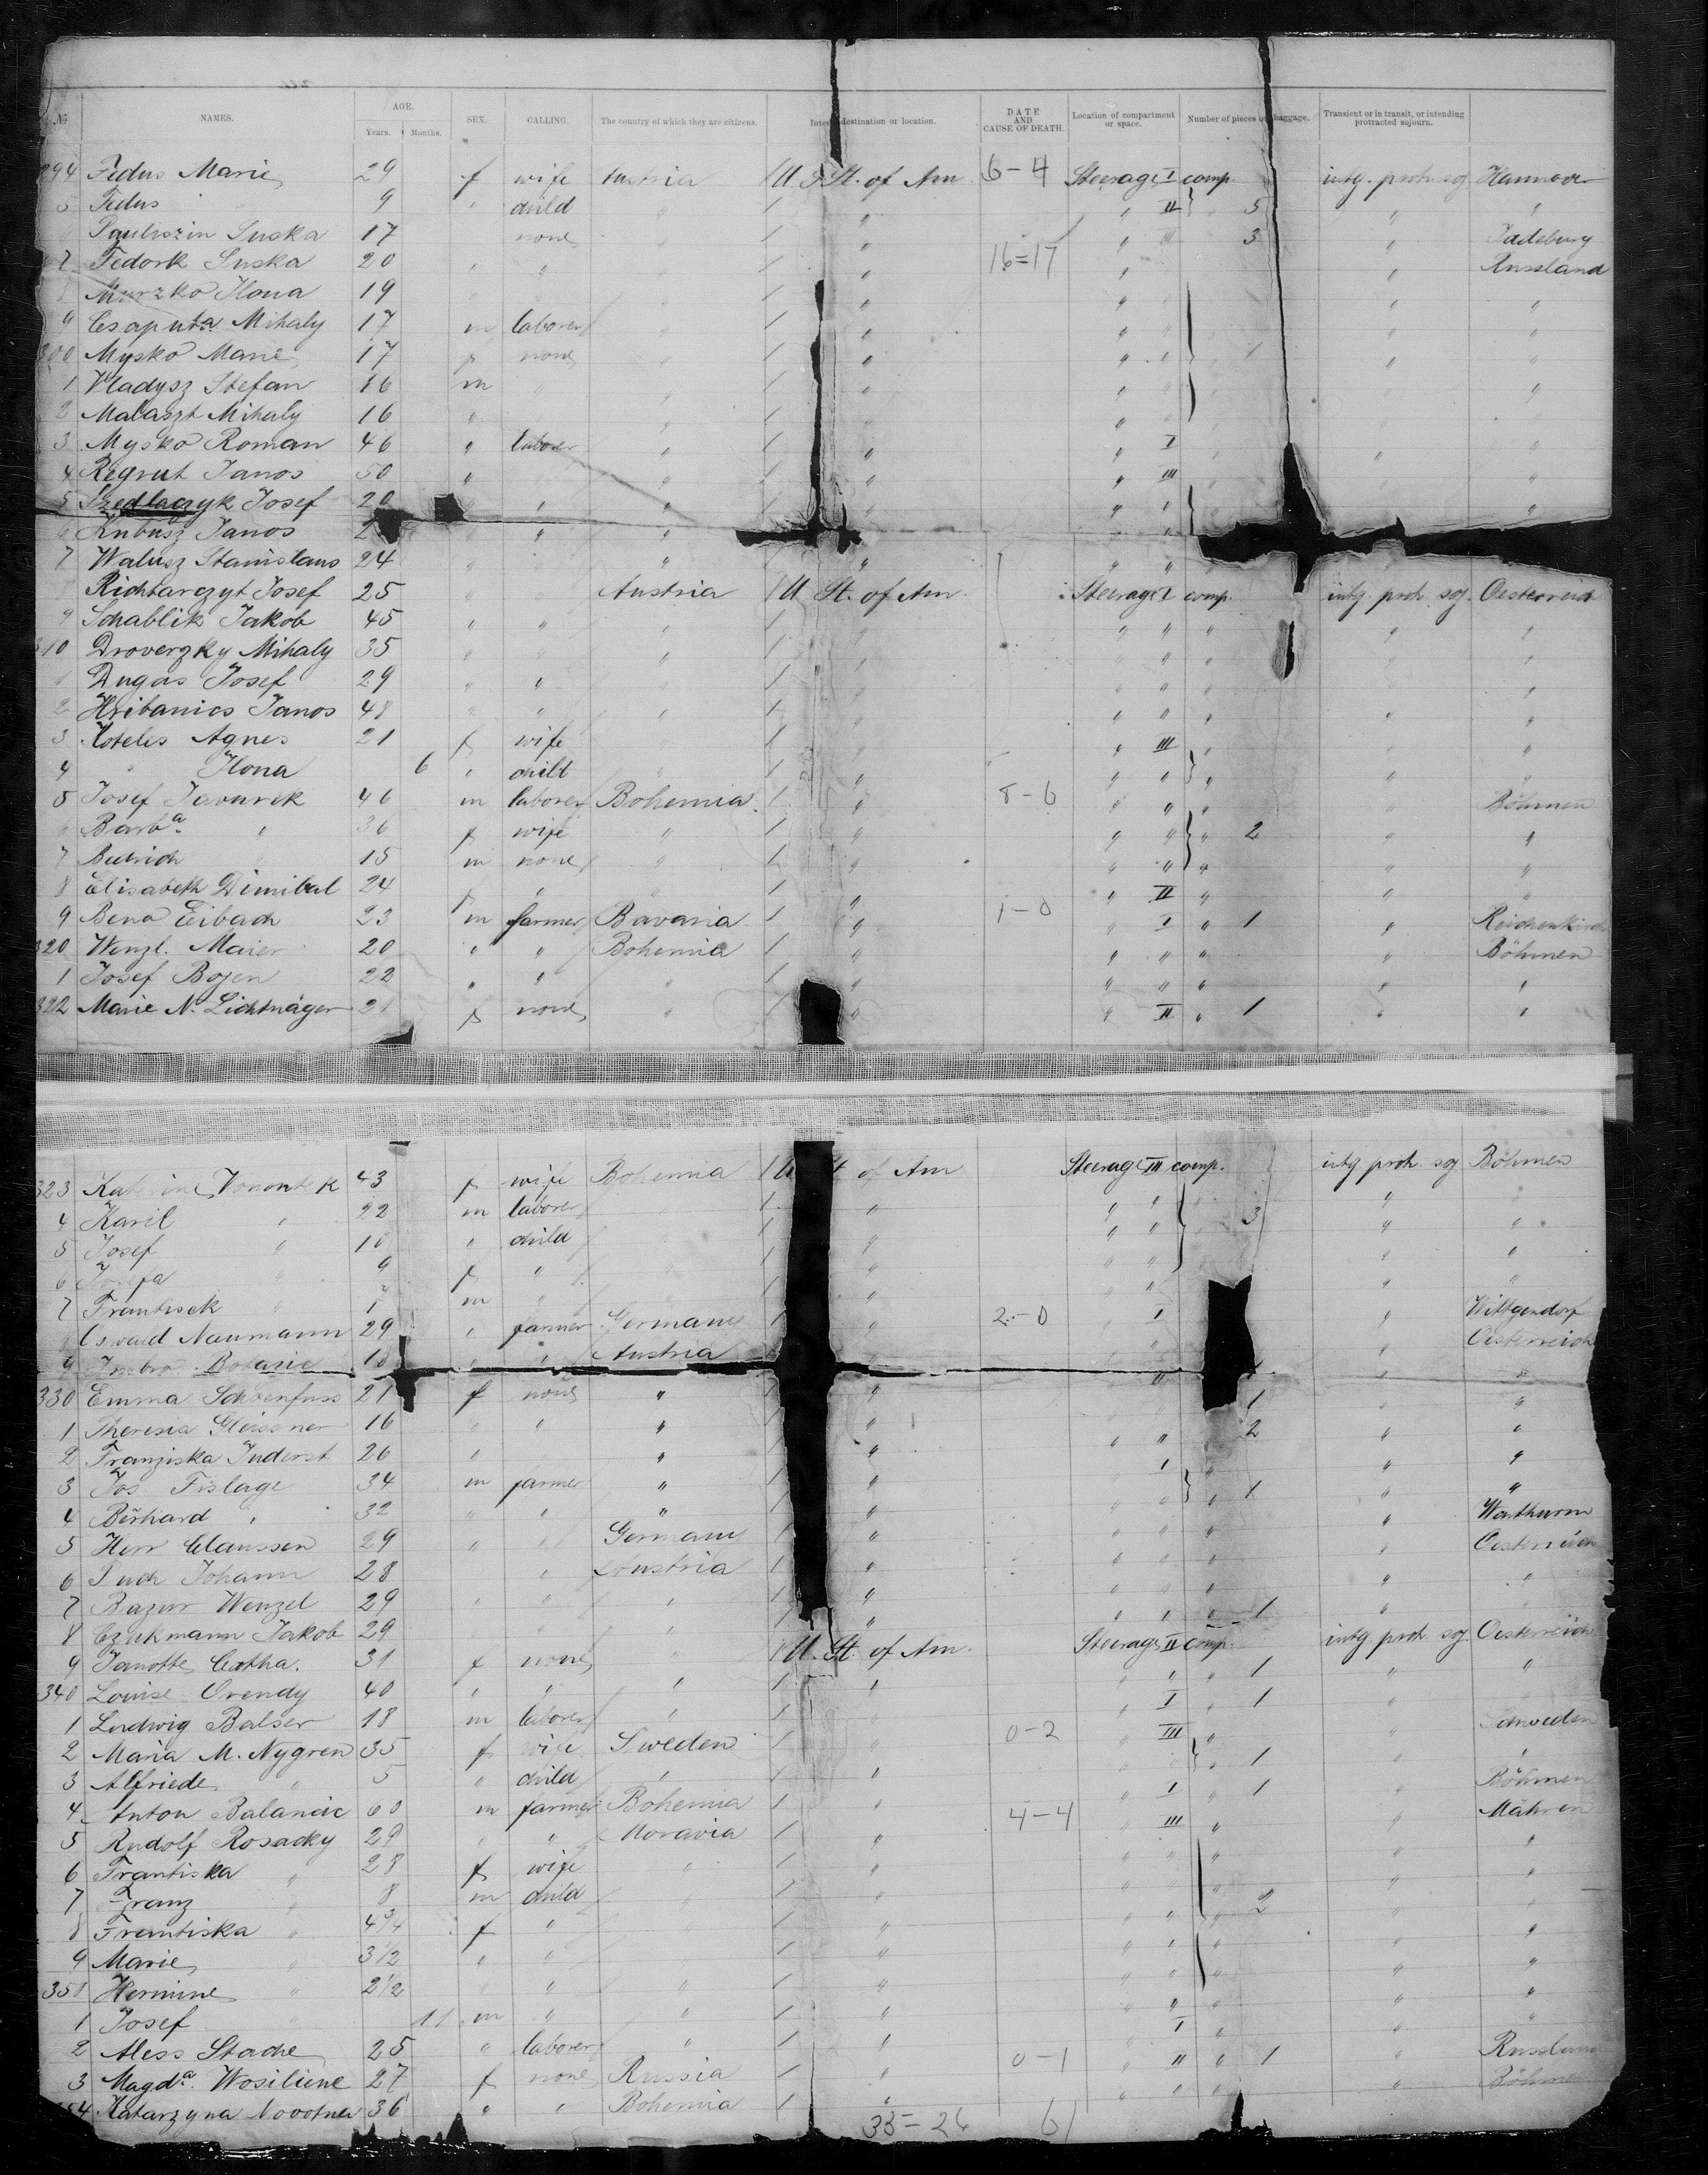 № NAMES. AGE. Years. Months. SEX. CALLING. The country of which they are citizens. destination or location. DATE AND CAUSE OF DEATH. Location of compartment or space. Number of pieces baggage. Transient or in transit, or intending protracted sojourn.
294 Fedus Marie 29 f wife Austria / U St. of Am 6-4 Steerage I comp. intg. proh. soj Hannover
5 Fedus " 9 " child " / " " II " 5 " "
Suska 17 none " / " " " 3 "
7 Fedork Suska 20 " " / " 16=17 " " Russland
8 Murzko Ilona 19 / " " " " "
9 Csaputa Mihaly 17 m laborer / " " " " "
300 Mysko Marie 17 f none " / " " " 1 " "
1 Wladysz Stefan 16 m / " " " "
2 Malaszt Mihaly 16 " / " " "
3 Mysko Roman 46 " laborer " / " " I " "
4 Regrut Janos 50 " " / " " III
5 Szedlaczyk Josef 20 " " / " " " "
6 Kubusz Janos " " "
7 Walusz Stanislaus 24 " " " " "
Richtarczyt Josef 25 Austria / U St. of Am. Steerage I comp. intg. proh. soj Oesterreich
9 Schablik Jakob 45 " " " / " " " " " "
310 Mihaly 35 " " / " " " " "
1 Dugas Josef 29 " " / " " " "
2 Hribanics Janos 48 " " " / " " " " "
3 Koteles Agnes 21 f wife / " III " " "
4 " Ilona 6 " child " / " " " " " "
5 Josef Javurek 46 m laborer Bohemia / " 8-6 " " " Böhmen
6 Barbª " 36 f wife " / " " " " 2 " "
7 15 m none " / " " " " "
8 Elisabeth Dimibal 24 f " " / " " II " " "
9 Beno Eibach 23 m farmer Bavaria / " 1-0 " I " 1 "
320 Wenzl. Maier 20 " " Bohemia / " " " " " Böhmen
1 Josef Bojen 22 " " " / " " " " " "
322 Marie N. Lichtnäger 21 f none " / " " II " 1 " "
323 43 f wife Bohemia / U St of Am Steerage III comp. intg proh. soj Böhmen
4 Karil " 22 m laborer / " " " 3 " "
5 Josef " 10 " child / " " " " "
6 Josefa " 9 f " / " " " " "
7 Frantisek " 7 m " / " " "
Oswald Naumann 29 " farmer Germany / " 2-0 " I " Wittgendorf
9 Imbro Botasic 18 " " Austria " " Oesterreich
330 Emma Schoenfuss 21 f none " / " " " "
1 Theresia Gleissner 16 " " " / " 1 "
2 Franziska Juderst 26 " " / " " " 2 " "
3 Jos Fislage 34 m farmer " / " I " " "
4 Bérhard " 32 " " " / " " " " 1 " "
5 Herr Claussen 29 " " Germany / " " " " "
6 Johann 28 " Austria / " " " " " Oesterreich
7 Bazur Wenzel 29 " " " / " " " " " "
8 Czukmann Jakob 29 " " / " " " " 1 "
9 Janotte Catha. 31 f none " / U. St. of Am. Steerage II comp. intg proh. soj Oesterreich
340 Louise Orendy 40 " " " / " " " " 1 " "
1 Ludwig Balser 18 m laborer " / " " I " 1 "
2 Maria M. Nygren 35 f wife Sweden / " 0-2 " III " Schweden
3 Alfriede " 5 " child " / " " 1 " "
4 Anton Balancic 60 m farmer Bohemia / " " I 1 " Böhmen
5 Rudolf Rosacky 29 " " Moravia / " 4-4 " III " " Mähren
6 Frantiska " 28 f wife " / " " " " "
7 Franz " 8 m child " / " " " 2 " "
8 Frantiska " 4 3/4 f " / " " " " "
9 Marie " 3 1/2 " " / " " " " " "
351 Hermine " 2 1/2 " " / " " " " " "
1 Josef " 11 m " " / " " " " "
2 Stache 25 " laborer " / " I " "
3 Magdª. Wosiliene 27 f none Russia / " 0-1 " II " 1 " Russland
354 Katarzyna Novotna 36 " " Bohemia / " " " " Böhmen
35-26 61